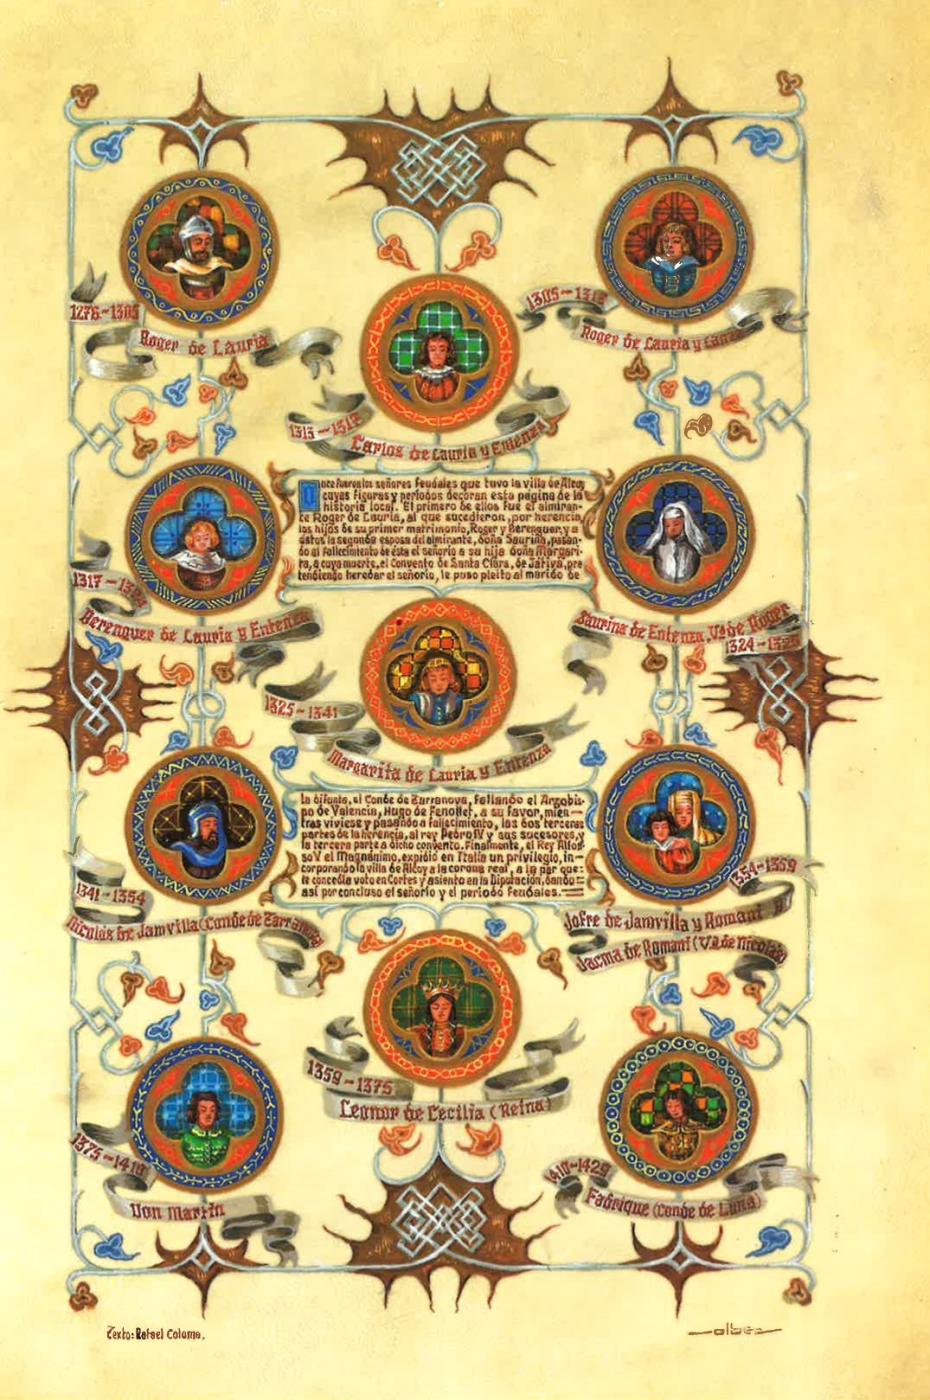 1276-1305
Roger de Lauria
1305-1313
Roger de Lauria y
1313-1317
Carlos de Lauria y Entenza
Once fueron los señores feudales que tuvo la villa de Alcoy,
cuyas figuras y períodos decoran esta página de la
historia local. El primero de ellos fue el almiran-
te Roger de Lauria, al que sucedieron, por herencia,
los hijos de su primer matrimonio, Roger y Berenguer, y a
éstos la segunda esposa del almirante, doña Saurina, pasan-
do al fallecimiento de ésta el señorío a su hija doña Margari-
ta, a cuya muerte, el Convento de Santa Clara, de Játiva, pre
tendiendo heredar el señorío, le puso pleito al marido de
1317-
Berenguer de Lauria y Entenza
Saurina de Entenza, Vª de Roger
1324-
1325-1341
Margarita de Lauria y Entenza
la difunta, el Conde de Zarranova, fallando el Arzobis-
po de Valencia, Hugo de Fenollet, a su favor, mien-
tras viviese y pasando a fallecimiento, las dos terceras
partes de la herencia, al rey Pedro IV y sus sucesores, y
la tercera parte a dicho convento. Finalmente, el Rey Alfon-
so V el Magnánimo, expidió en Italia un privilegio, in-
corporando la villa de Alcoy a la corona real, a la par que:
te concedía voto en Cortes y asiento en la Diputación, dando:
así por concluso el señorío y el período Feudales.
1341-1354
Nicolás de Jamvilla (Conde de Zarranova)
1354-1359
Jofre de Jamvilla y Romaní
Jacma de Romaní (Vª de Nicolás)
1359-1375
Leonor de Cecilia (Reina)
1375-1410
Don Martín
1410-1429
Fadrique (Conde de Luna)
Texto: Rafael Coloma.